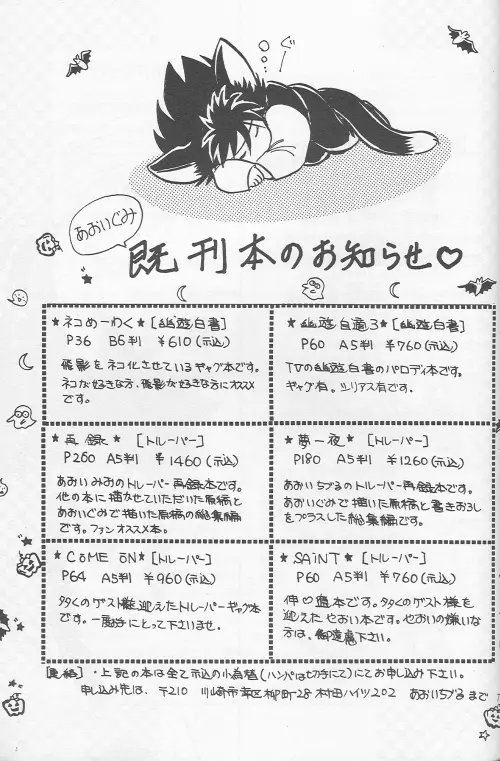 ぐー
あおいぐみ
既刊本のお知らせ♡
★ネコめーわく★[幽遊白書]
P36 B6判 ¥610(示込)
飛影をネコ化させているギャグ本です。
ネコが好きな方、飛影が好きな方にオススメ
です。
★幽遊自適3★[幽遊白書]
P60 A5判 ¥760(示込)
TVの幽遊白書のパロディ本です。
ギャグ有。シリアス有です。
★再録★[トルーパー]
P260 A5判 ¥1460(示込)
あおいみおのトルーパー再録本です。
他の本に描かせていただいた原稿と
あおいぐみで描いた原稿の総集編
です。ファンオススメ本。
★夢一夜★[トルーパー]
P180 A5判 ¥1260(示込)
あおいちづるのトルーパー再録本です。
あおいぐみで描いた原稿と書きおろし
をプラスした総集編です。
★COME ON★[トルーパー]
P64 A5判 ¥960(示込)
タタくのゲスト様迎えたトルーパーギャグ本
です。一度手にとって下さいませ。
★SAiNT★[トルーパー]
P60 A5判 ¥760(示込)
伸♡当本です。タタくのゲスト様を
迎えたやおい本です。やおいの嫌いな
方は、御遠慮下さい。
・上記の本は全て示込の小為替(ハンパは切手にて)にてお申し込み下さい。
申し込み先は、〒210 川崎市幸区柳町28 村田ハイツ202 あおいちづるまで